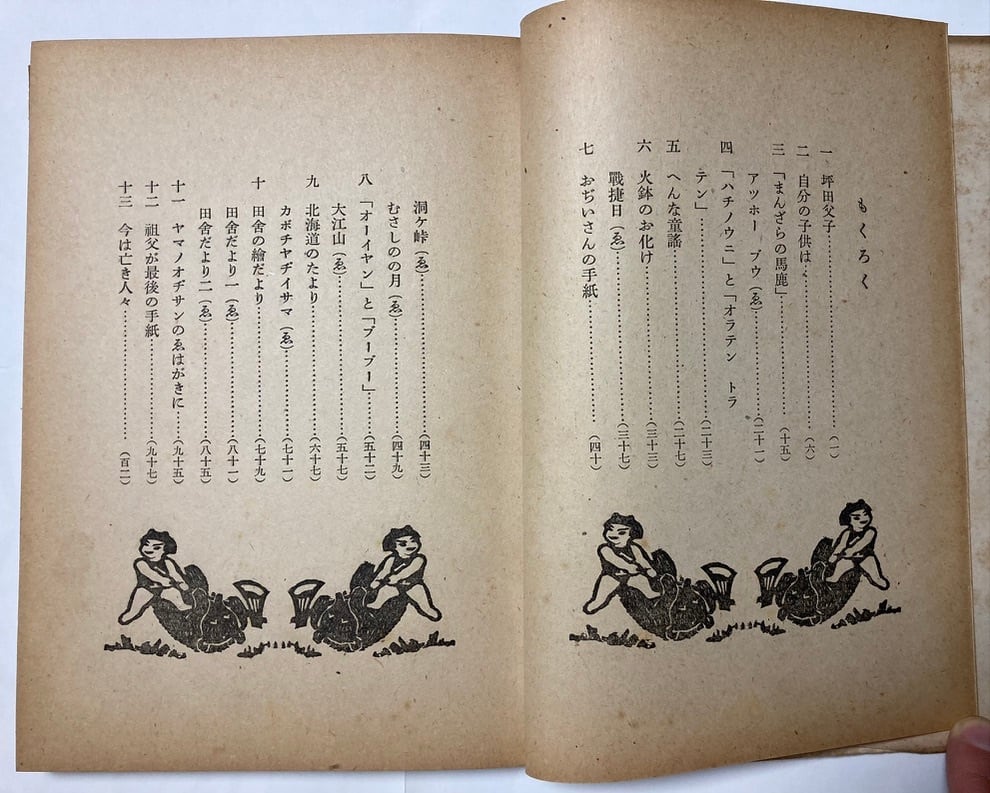 もくろく
一 坪田父子………（一）
二 自分の子供は………（六）
三 「まんざらの馬鹿」………（十五）
アツホー ブウ（ゑ）………（二十一）
四 「ハチノウニ」と「オラテン トラ
テン」………（二十三）
五 へんな童謠………（二十七）
六 火鉢のお化け………（三十三）
戰捷日（ゑ）………（三十七）
七 おぢいさんの手紙………（四十）
洞ケ峠（ゑ）………（四十三）
むさしのの月（ゑ）………（四十九）
八 「オーイヤン」と「ブーブー」………（五十二）
大江山（ゑ）………（五十七）
九 北海道のたより………（六十七）
カボチヤヂイサマ（ゑ）………（七十一）
十 田舍の繪だより………（七十九）
田舍だより一（ゑ）………（八十一）
田舍だより二（ゑ）………（八十五）
十一 ヤマノオヂサンのゑはがきに………（九十五）
十二 祖父が最後の手紙………（九十七）
十三 今は亡き人々………（百二）